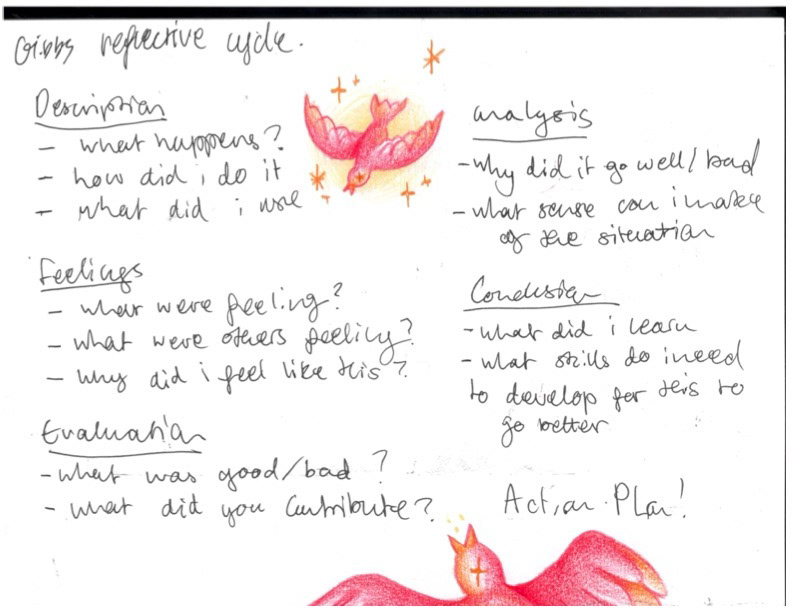 Gibbs reflective cycle.
Description
- what happens?
- how did i do it
- what did i use
Feelings
- what were feeling?
- what were others feeling?
- why did i feel like this?
Evaluation
- what was good/bad ?
- what did you contribute?
analysis
- why did it go well/bad
- what sense can i make
of the situation
Conclusion
- what did i learn
- what skills do i need
to develop for this to
go better
Action Plan!